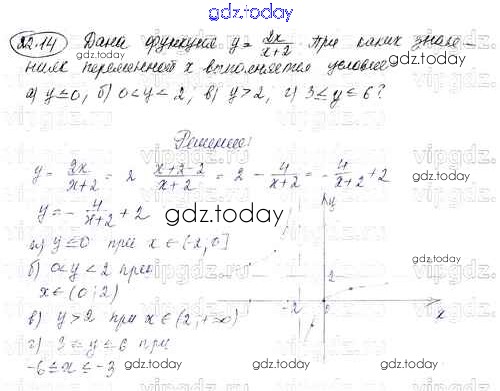 gdz.today
22.14) Дана функция y = 2x/(x+2). При каких значе-
ниях переменной x выполняется условие
а) y ≤ 0, б) 0 < y < 2; в) y > 2; г) 3 ≤ y ≤ 6?
gdz.today
Решение:
y = 2x/(x+2) = 2 (x+2-2)/(x+2) = 2 - 4/(x+2) = -4/(x+2) + 2
y = -4/(x+2) + 2
gdz.today
а) y ≤ 0 при x ∈ (-2, 0]
б) 0 < y < 2 при
x ∈ (0; 2)
в) y > 2 при x ∈ (2, +∞)
г) 3 ≤ y ≤ 6 при
-6 ≤ x ≤ -3
y
2
-2
0
x
gdz.today
gdz.today
gdz.today